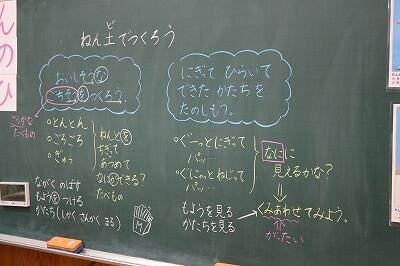 んのひ
ねん土でつくろう
おいしそうな
ごちそうをつくろう。
ごうかな
たべもの
○とんとん
○ころころ
○ぎゅっ
ねんどを
ちぎって
あつめて
なにができる?
たべもの
ながく のばす
もようをつける
かたち(しかく さんかく まる)
M
にぎって ひらいて
できた かたちを
たのしもう。
○ぐーっとにぎって
パッ…
○ぐにゅっとねじって
パッ…
なにに
見えるかな?
もようを見る
かたちを見る
くみあわせてみよう。
がったい